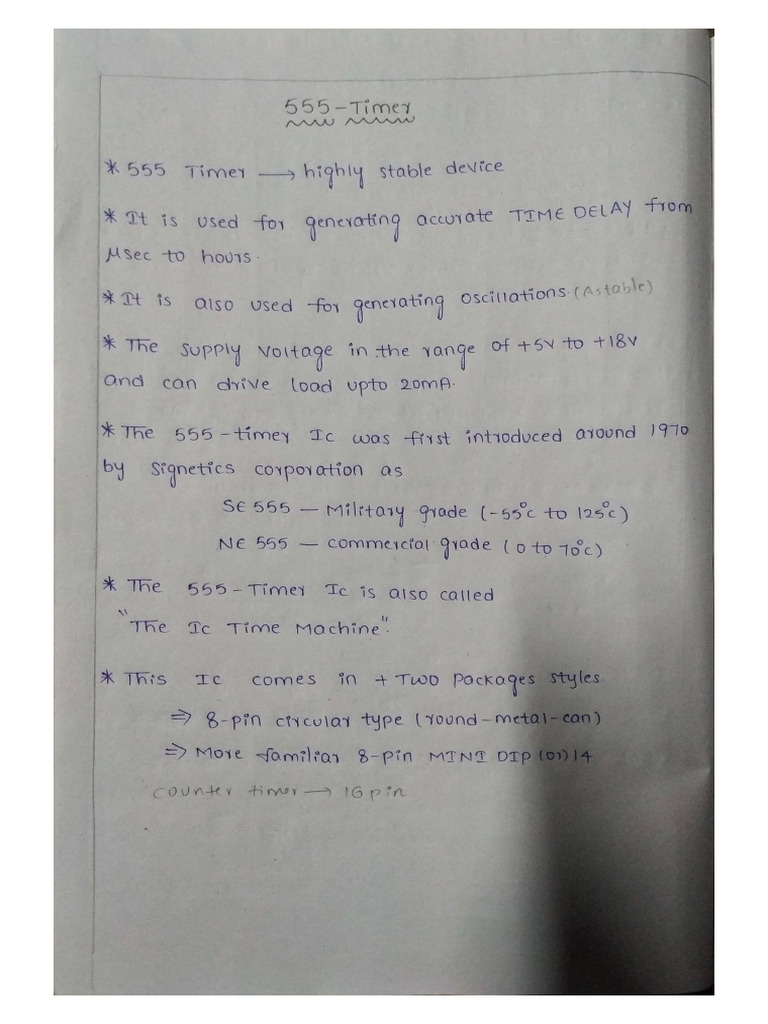 555-Timer
* 555 Timer → highly stable device
* It is used for generating accurate TIME DELAY from
μsec to hours.
* It is also used for generating oscillations. (Astable)
* The supply voltage in the range of +5V to +18V
and can drive load upto 20mA.
* The 555-timer Ic was first introduced around 1970
by Signetics corporation as
SE 555 — Military grade (-55°c to 125°c)
NE 555 — commercial grade (0 to 70°c)
* The 555-Timer Ic is also called
"The Ic Time Machine".
* This Ic comes in + Two Packages styles.
⇒ 8-pin circular type (round-metal-can)
⇒ More familiar 8-pin MINI DIP (or) 14
counter timer → 16 pin